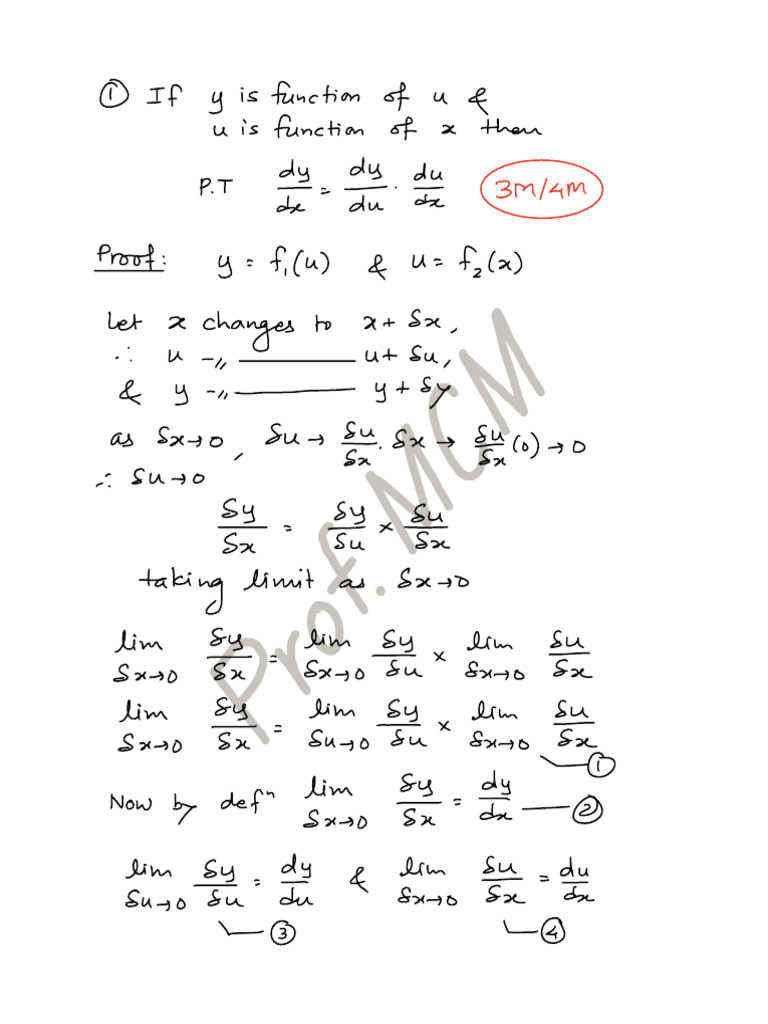 ① If y is function of u &
u is function of x then
P.T dy/dx = dy/du · du/dx 3M/4M
Proof: y = f₁(u) & u = f₂(x)
Let x changes to x + δx,
∴ u -〃- u + δu,
& y -〃- y + δy
as δx→0, δu → δu/δx · δx → δu/δx (0) → 0
∴ δu→0
δy/δx = δy/δu × δu/δx
taking limit as δx→0
lim δx→0 δy/δx = lim δx→0 δy/δu × lim δx→0 δu/δx
lim δx→0 δy/δx = lim δu→0 δy/δu × lim δx→0 δu/δx
①
Now by defⁿ lim δx→0 δy/δx = dy/dx — ②
lim δu→0 δy/δu = dy/du & lim δx→0 δu/δx = du/dx
③ ④
Prof. MCM